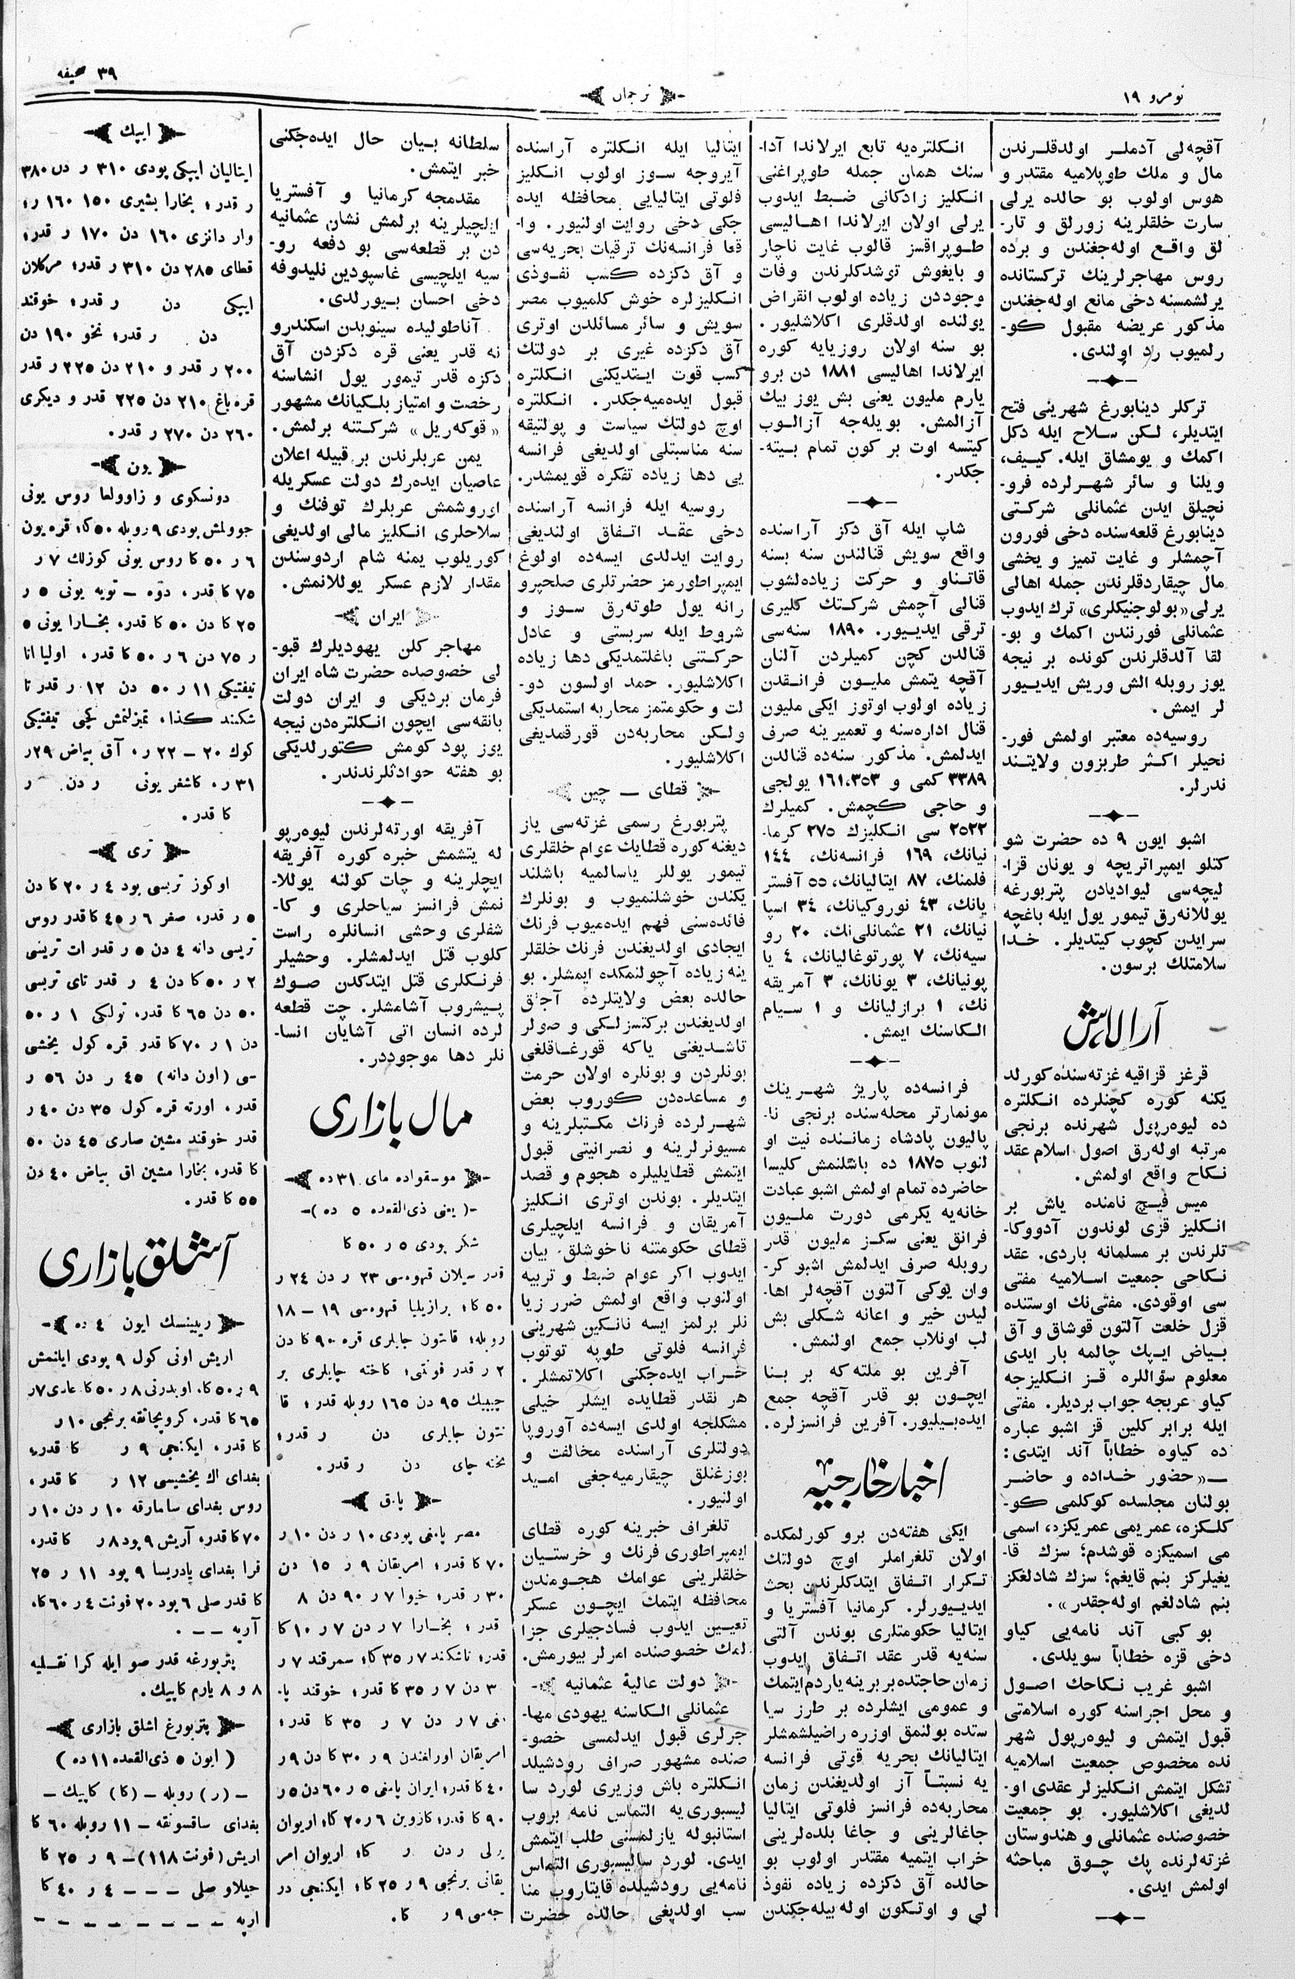 نومرو ١٩
ترجمان
٣٩ صحيفه
آقچه‌لى آدملر اولدقلرندن
مال و ملك طوپلاميه مقتدر و
هوس اولوب بو حالده يرلى
سارت خلقلرينه زورلق و تار-
لق واقع اوله‌جغندن و برده
روس مهاجرلرينك تركستانده
يرلشمسنه دخى مانع اوله‌جغندن
مذكور عريضه مقبول كو-
رلميوب رد اولندى.
تركلر دينابورغ شهرينى فتح
ايتديلر، لكن سلاح ايله دكل
اكمك و يومشاق ايله. كييف،
ويلنا و سائر شهرلرده فرو-
نچيلق ايدن عثمانلى شركتى
دينابورغ قلعه‌سنده دخى فورون
آچمشلر و غايت تميز و يخشى
مال چيقاردقلرندن جمله اهالى
يرلى «بولوجنيكلرى» ترك ايدوب
عثمانلى فورنندن اكمك و بو-
لقا آلدقلرندن كونده بر نيجه
يوز روبله الش وريش ايدييور
لر ايمش.
روسيه‌ده معتبر اولمش فور-
نجيلر اكثر طربزون ولايتند
ندرلر.
اشبو ايون ٩ ده حضرت شو
كتلو ايمپراتريچه و يونان قرا-
ليچه‌سى ليواديادن پتربورغه
يوللانه‌رق تيمور يول ايله باغچه
سرايدن كچوب كيتديلر. خدا
سلامتلك برسون.
آرالاش
قرغز قزاقيه غزته‌سنده كورلد
يكنه كوره كچنلرده انكلتره
ده ليوه‌رپول شهرنده برنجى
مرتبه اوله‌رق اصول اسلام عقد
نكاح واقع اولمش.
ميس فيچ نامنده ياش بر
انكليز قزى لوندون آدووكا-
تلرندن بر مسلمانه باردى. عقد
نكاحى جمعيت اسلاميه مفتى
سى اوقودى. مفتى‌نك اوستنده
قزل خلعت آلتون قوشاق و آق
بياض ايپك چالمه بار ايدى
معلوم سؤاللره قز انكليزجه
كياو عربجه جواب برديلر. مفتى
ايله برابر كلين قز اشبو عباره
ده كياوه خطاباً آند ايتدى:
—«حضور خداده و حاضر
بولنان مجلسده كوكلمى كو-
كلكزه، عمريمى عمريكزه، اسمى
مى اسميكزه قوشدم؛ سزك قا-
يغيلركز بنم قايغم؛ سزك شادلغكز
بنم شادلغم اوله‌جقدر».
بو كبى آند نامه‌يى كياو
دخى قزه خطاباً سويلدى.
اشبو غريب نكاحك اصول
و محل اجراسنه كوره اسلامتى
قبول ايتمش و ليوه‌رپول شهر
نده مخصوص جمعيت اسلاميه
تشكل ايتمش انكليزلر عقدى او-
لديغى اكلاشليور. بو جمعيت
خصوصنده عثمانلى و هندوستان
غزته‌لرنده پك چوق مباحثه
اولمش ايدى.
انكلتره‌يه تابع ايرلاندا آدا-
سنك همان جمله طوپراغنى
انكليز زادكانى ضبط ايدوب
يرلى اولان ايرلاندا اهاليسى
طوپراقسز قالوب غايت ناچار
و بايغوش توشدكلرندن وفات
وجوددن زياده اولوب انقراض
يولنده اولدقلرى اكلاشليور.
بو سنه اولان روزيايه كوره
ايرلاندا اهاليسى ١٨٨١ دن برو
يارم مليون يعنى بش يوز بيك
آزالمش. بويله‌جه آزالوب
كيتسه اوت بر كون تمام بيته-
جكدر.
شاپ ايله آق دكز آراسنده
واقع سويش قنالندن سنه بسنه
قاتناو و حركت زياده‌لشوب
قنالى آچمش شركتك كليرى
ترقى ايدييور. ١٨٩٠ سنه‌سى
قنالدن كچن كميلردن آلنان
آقچه يتمش مليون فرانقدن
زياده اولوب اوتوز ايكى مليون
قنال اداره‌سنه و تعميرينه صرف
ايدلمش. مذكور سنه‌ده قنالدن
٣٣٨٩ كمى و ١٦١،٣٥٣ يولجى
و حاجى كچمش. كميلرك
٢٥٢٢ سى انكليزك ٢٧٥ كرما-
نيانك، ١٦٩ فرانسه‌نك، ١٤٤
فلمنك، ٨٧ ايتاليانك، ٥٥ آفستر
يانك، ٤٣ نوروكيانك، ٣٤ اسپا
نيانك، ٢١ عثمانلى‌نك، ٢٠ رو
سيه‌نك، ٧ پورتوغاليانك، ٤ يا
پونيانك، ٣ يونانك، ٣ آمريقه
نك، ١ برازليانك و ١ سيام
الكاسنك ايمش.
فرانسه‌ده پاريژ شهرينك
مونمارتر محله‌سنده برنجى نا-
پاليون پادشاه زماننده نيت او
لنوب ١٨٧٥ ده باشلنمش كليسا
حاضرده تمام اولمش اشبو عبادت
خانه‌يه يكرمى دورت مليون
فرانق يعنى سكز مليون قدر
روبله صرف ايدلمش اشبو كر-
وان يوكى آلتون آقچه‌لر اها-
ليدن خير و اعانه شكلى بش
لب اونلاب جمع اولنمش.
آفرين بو ملته كه بر بنا
ايچون بو قدر آقچه جمع
ايده‌بيليور. آفرين فرانسزلره.
اخبار خارجيه
ايكى هفته‌دن برو كورلمكده
اولان تلغراملر اوچ دولتك
تكرار اتفاق ايتدكلرندن بحث
ايدييورلر. كرمانيا آفستريا و
ايتاليا حكومتلرى بوندن آلتى
سنه‌يه قدر عقد اتفاق ايدوب
زمان حاجتده بر برينه ياردم ايتمك
و عمومى ايشلرده بر طرز سيا
ستده بولنمق اوزره راضيلشمشلر
ايتاليانك بحريه قوتى فرانسه
يه نسبتاً آز اولديغندن زمان
محاربه‌ده فرانسز فلوتى ايتاليا
جاغالرينى و جاغا بلده‌لرينى
خراب ايتميه مقتدر اولوب بو
حالده آق دكزده زياده نفوذ
لى و اوتكون اوله بيله‌جكندن
ايتاليا ايله انكلتره آراسنده
آيروجه سوز اولوب انكليز
فلوتى ايتاليايى محافظه ايده
جكى دخى روايت اولنيور. وا-
قعا فرانسه‌نك ترقيات بحريه‌سى
و آق دكزده كسب نفوذى
انكليزلره خوش كلميوب مصر
سويش و سائر مسائلدن اوترى
آق دكزده غيرى بر دولتك
كسب قوت ايتديكنى انكلتره
قبول ايده‌ميه‌جكدر. انكلتره
اوچ دولتك سياست و پولتيقه
سنه مناسبتلى اولديغى فرانسه
يى دها زياده تفكره قويمشدر.
روسيه ايله فرانسه آراسنده
دخى عقد اتفاق اولنديغى
روايت ايدلدى ايسه‌ده اولوغ
ايمپراطورمز حضرتلرى صلحپرو
رانه يول طوته‌رق سوز و
شروط ايله سربستى و عادل
حركتنى باغلتمديكى دها زياده
اكلاشليور. حمد اولسون دو-
لت و حكومتمز محاربه استمديكى
ولكن محاربه‌دن قورقمديغى
اكلاشليور.
قطاى — چين
پتربورغ رسمى غزته‌سى ياز
ديغنه كوره قطايك عوام خلقلرى
تيمور يوللر ياسالميه باشلند
يكندن خوشلنميوب و بونلرك
فائده‌سنى فهم ايده‌ميوب فرنك
ايجادى اولديغندن فرنك خلقلر
ينه زياده آچولنمكده ايمشلر. بو
حالده بعض ولايتلرده آجلق
اولديغندن بركتسزلكى و صولر
تاشديغنى ياكه قورغاقلغى
بونلردن و بونلره اولان حرمت
و مساعده‌دن كوروب بعض
شهرلرده فرنك مكتبلرينه و
مسيونرلرينه و نصرانيتى قبول
ايتمش قطايليلره هجوم و قصد
ايتديلر. بوندن اوترى انكليز
آمريقان و فرانسه ايلچيلرى
قطاى حكومتنه ناخوشلق بيان
ايدوب اكر عوام ضبط و تربيه
اولنوب واقع اولمش ضرر زيا
نلر برلمز ايسه نانكين شهرينى
فرانسه فلوتى طوپه توتوب
خراب ايده‌جكنى اكلاتمشلر.
هر نقدر قطايده ايشلر خيلى
مشكلجه اولدى ايسه‌ده آوروپا
دولتلرى آراسنده مخالفت و
بوزغنلق چيقارميه‌جغى اميد
اولنيور.
تلغراف خبرينه كوره قطاى
ايمپراطورى فرنك و خرستيان
خلقلرينى عوامك هجومندن
محافظه ايتمك ايچون عسكر
تعيين ايدوب فسادجيلرى جزا
لمك خصوصنده امرلر بيورمش.
دولت عاليهٔ عثمانيه
عثمانلى الكاسنه يهودى مها-
جرلرى قبول ايدلمسى خصو-
صنده مشهور صراف رودشيلد
انكلتره باش وزيرى لورد سا
ليسبورى‌يه التماس نامه بروب
استانبوله يازلمسنى طلب ايتمش
ايدى. لورد ساليسبورى التماس
نامه‌يى رودشيلده قايتاروب منا
سب اولديغى حالده حضرت
سلطانه بيان حال ايده‌جكنى
خبر ايتمش.
مقدمجه كرمانيا و آفستريا
ايلچيلرينه برلمش نشان عثمانيه
دن بر قطعه‌سى بو دفعه رو-
سيه ايلچيسى غاسپودين نليدوفه
دخى احسان بيورلدى.
آناطوليده سينوبدن اسكندرو
نه قدر يعنى قره دكزدن آق
دكزه قدر تيمور يول انشاسنه
رخصت و امتياز بلكيانك مشهور
«قوكه‌ريل» شركتنه برلمش.
يمن عربلرندن بر قبيله اعلان
عاصيان ايده‌رك دولت عسكريله
اوروشمش عربلرك توفنك و
سلاحلرى انكليز مالى اولديغى
كوريلوب يمنه شام اردوسندن
مقدار لازم عسكر يوللانمش.
ايران
مهاجر كلن يهوديلرك قبو-
لى خصوصده حضرت شاه ايران
فرمان برديكى و ايران دولت
بانقه‌سى ايچون انكلتره‌دن نيجه
يوز پود كومش كتورلديكى
بو هفته حوادثلرندندر.
آفريقه اورته‌لرندن ليوه‌رپو
له يتشمش خبره كوره آفريقه
ايچلرينه و چات كولنه يوللا-
نمش فرانسز سياحلرى و كا-
شفلرى وحشى انسانلره راست
كلوب قتل ايدلمشلر. وحشيلر
فرنكلرى قتل ايتدكدن صوك
پيشروب آشامشلر. چت قطعه
لرده انسان اتى آشايان انسا-
نلر دها موجوددر.
مال بازارى
موسقواده ماى ٣١ ده
-(يعنى ذى القعده ٥ ده)-
شكر پودى ٥ ر ٥٠ كا
قدر سيلان قهوه‌سى ٢٣ ر دن ٢٤ ر
٥٠ كا؛ برازيليا قهوه‌سى ١٩ – ١٨
روبله؛ قانتون جايلرى قره ٩٠ كا دن
٢ ر قدر فونتى؛ كاخته چايلرى بر
چيبيك ٩٥ دن ١٦٥ روبله قدر؛ قا
نتون جايلرى دن ر قدر؛
تخته چاى دن ر قدر.
پانق
مصر پانغى پودى ١٠ ر دن ١٠ ر
٧٠ كا قدر؛ امريقان ٩ ر ١٥ دن
٣٠ ر قدر؛ خيوا ٧ ر ٩٠ دن ٨
قدر؛ بخارا ٧ ر دن ٧ ر ١٠ كا
قدر؛ تاشكند ٧ ر ٣٥ كا؛ سمرقند ٧ ر
٣٠ دن ٧ ر ٣٥ كا قدر؛ خوقند پا-
نغى ٧ ر دن ٧ ر ٣٥ كا قدر؛
امريقان اورلغندن ٩ ر ٣٠ كا دن ٩ ر
٤٠ كا قدر؛ ايران پانغى ٥ ر ٦٠ دن ٥ ر
٩٠ كا قدر؛ كازوين ٦ ر ٢٠ كا؛ اريوان
يلى ر دن ر كا؛ اريوان امر
يقانى برنجى ٩ ر ٢٥ كا؛ ايكنجى در
جه‌سى ٩ ر كا.
ايپك
ايتاليان ايپكى پودى ٣١٠ ر دن ٣٨٠
ر قدر؛ بخارا بشيرى ١٥٠ ١٦٠ ر؛
وار دانزى ١٦٠ دن ١٧٠ ر قدر؛
قطاى ٢٨٥ دن ٣١٠ ر قدر؛ مركلان
ايپكى دن ر قدر؛ خوقند
دن ر قدر؛ نخو ١٩٠ دن
٢٠٠ ر قدر و ٢١٠ دن ٢٢٥ ر قدر
قره باغ ٢١٠ دن ٢٢٥ قدر و ديكرى
٢٦٠ دن ٢٧٠ ر قدر.
يون
دونسكوى و زاوولغا روس يونى
جوولمش پودى ٩ روبله ٥٠ كا؛ قره يون
٦ ر ٥٠ كا روس يونى كوزلك ٧ ر
٧٥ كا قدر، دوه – تويه يونى ٥ ر
٢٥ كا دن ٥٠ كا قدر، بخارا يونى ٥
ر ٧٥ دن ٦ ر ٥٠ كا قدر، اوليا اتا
تيفتيكى ١١ ر ٥٠ دن ١٢ ر قدر تا
شكند كذا، تميزلنمش كچى تيفتيكى
كوك ٢٠ – ٢٢ ر، آق بياض ٢٩ ر
٣١ ر، كاشغر يونى ر دن ر
كا قدر.
ترى
اوكوز تريسى پود ٤ ر ٢٠ كا دن
٥ ر قدر، صغر ٦ ر ٤٥ كا قدر روس
تريسى دانه ٤ دن ٥ ر قدر ات تريسى
٢ ر ٥٠ كا دن ٤ ر قدر تاى تريسى
٥٠ دن ٦٥ كا قدر، تولكى ١ ر ٥٠
دن ١ ر ٧٠ كا قدر قره كول يخشى
-ى (اون دانه) ٤٥ ر دن ٥٦ ر
قدر، اورته قره كول ٣٥ دن ٤٠ ر
قدر خوقند مشين صارى ٤٥ دن ٥٠
كا قدر، بخارا مشين اق بياض ٤٠ دن
٥٥ كا قدر.
آشلق بازارى
ريبينسك ايون ٤ ده
اريش اونى كول ٩ پودى ايلنمش
٩ ر ٥٠ كا، اوبدرنى ٨ ر ٥٠ كا عادى ٧ ر
٦٥ كا قدر، كروپچاتقه برنجى ١٠ ر
كا قدر، ايكنجى ٩ ر كا قدر،
بغداى اك يخشيسى ١٢ ر كا قدر،
روس بغداى سامارقه ١٠ ر دن ١٠ ر
٧٠ كا قدر، آريش ٩ پود ٨ ر كا قدر،
قرا بغداى يادريسا ٩ پود ١١ ر ٢٥
كا قدر صلى ٦ پود ٢٠ فونت ٤ ر ٦٠ كا،
آرپه – – .
پتربورغه قدر صو ايله كرا نقليه
٨ و ٨ يارم كاپيك.
پتربورغ اشلق بازارى
( ايون ٥ ذى القعده ١١ ده )
– (ر) روبله – (كا) كاپيك –
بغداى ساقسونقه – ١١ روبله ٦٠ كا
اريش (فونت ١١٨) – ٩ ر ٢٥ كا
جيلاو صلى – – – ٤ ر ٤٠ كا
ارپه – – – – – – – –